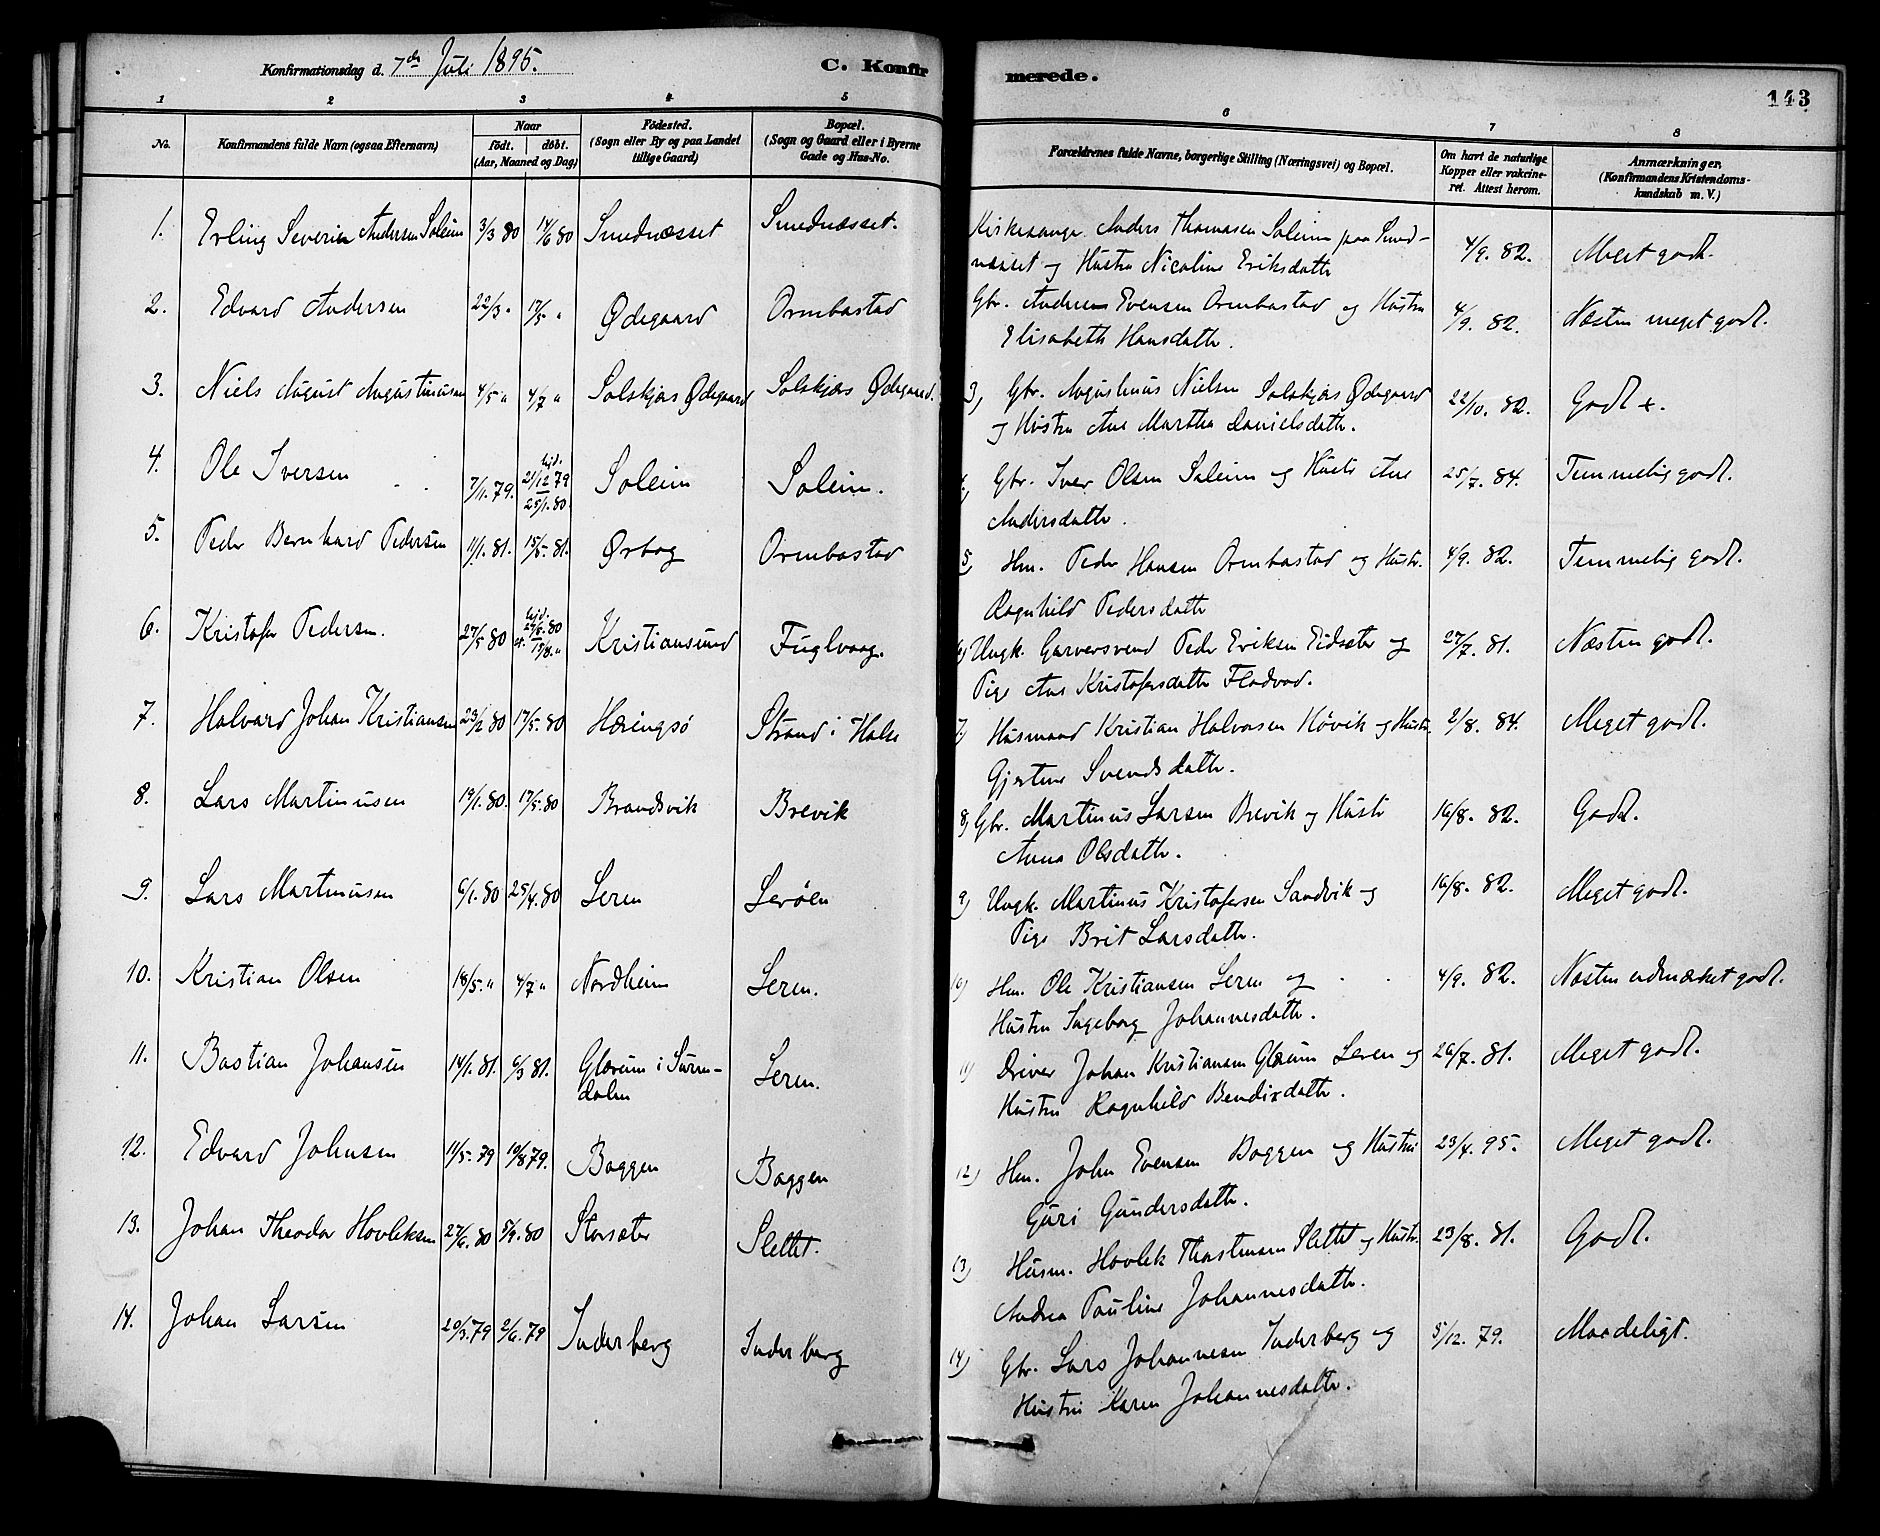 Konfirmationsdag d. 7de Juli 1895. C. Konfirmerede. 143
1 2 3 4 5 6 7 8
No. Konfirmandens fulde Navn (ogsaa Efternavn)
Naar
födt. döbt.
(Aar, Maaned og Dag)
Födested.
(Sogn eller By og paa Landet
tillige Gaard)
Bopæl.
(Sogn og Gaard eller i Byerne
Gade og Hus-No.
Forældrenes fulde Navne, borgerlige Stilling (Næringsvei) og Bopæl.
Om havt de naturlige
Kopper eller vakcine-
ret. Attest herom.
Anmærkninger
(Konfirmandens Kristendoms-
kundskab m. V.)
1. Erling Severin Andersen Soleim 3/3 80 14/6 80 Smednæsset Smednæsset. Kirkesanger Anders Thomasen Soleim paa Smed- 4/9. 82. Meget godt.
næsset og Hustru Nicoline Eriksdatter
2. Edvard Andersen 22/3 " 17/5 " Ødegaard Ormbostad Gbr. Anders Evensen Ormbostad og Hustru 4/9. 82. Næsten meget godt.
Elisabeth Hansdatter.
3. Niels August Augustinusen 4/5 " 4/7 " Solskjæs Ødegaard Solskjæs Ødegaard. 3) Gbr. Augustinus Nielsen Solskjæs Ødegaard 22/10. 82. Godt +.
og Hustru Ane Martha Danielsdatter.
4. Ole Iversen 7/11. 79. hjd. 21/12 79 25/1. 80. Soleim Soleim. 4) Gbr. Iver Olsen Soleim og Hustr Ane 25/7. 84. Temmelig godt.
Andersdatter.
5. Peder Bernhard Pedersen 11/1. 81. 15/5. 81. Ørbog Ormbostad 5) Hm. Peder Hansen Ormbostad og Hustr. 4/9. 82. Temmelig godt.
Ragnhild Pedersdatter
6. Kristofer Pedersen. 27/5 80 hjd. 80 15/8. " Kristiansund Fuglvaag. 6) Ungk. Garversvend Peder Eriksen Eidsæter og 27/7. 81. Næsten godt.
Pige Ane Kristofersdatter Flodvad.
7. Halvard Johan Kristiansen 23/2 80 17/5. 80 Hæringsø Strand i Halse 7) Husmand Kristian Halvorsen Høvik og Hustr. 2/8. 84. Meget godt.
Gjertine Svendsdatter.
8. Lars Martinusen 19/1. 80. 17/5. 80 Brandsvik Brevik 8) Gbr. Martinus Larsen Brevik og Hustr 16/8. 82. Godt.
Anna Olsdatter.
9. Lars Martinusen 6/1. 80 25/4. 80 Leren Lerøen 9) Ungk. Martinus Kristofersen Sandvik og 16/8. 82. Meget godt.
Pige Brit Larsdatter.
10. Kristian Olsen 18/5. " 4/7 " Nordheim Leren. 10) Hm. Ole Kristiansen Leren og 4/9. 82. Næsten udmærket godt.
Hustru Ingeborg Johannesdatter.
11. Bastian Johansen 14/1. 81. 6/3 81. Glærum i Surn- Leren. 11) Driver Johan Kristiansen Glærum Leren og 26/7. 81. Meget godt.
dalen Hustru Ragnhild Bendixdatter.
12. Edvard Johnsen 11/5. 79 10/8 79. Boggen Boggen 12) Hm. John Evensen Boggen og Hustru 23/4. 95. Meget godt.
Guri Gundersdatter.
13. Johan Theodor Hovleksen 27/6. 80 5/9. 80 Storsæter Slettet. 13) Husm. Hovlek Thorstensen Slettet og Hustr. 23/8. 81. Godt.
Andrea Pauline Johannesdatter.
14. Johan Larsen 20/3. 79 2/6. 79 Inderberg Inderberg 14) Gbr. Lars Johannesen Inderberg og 5/12. 79. Maadeligt.
Hustru Karen Johannesdatter.